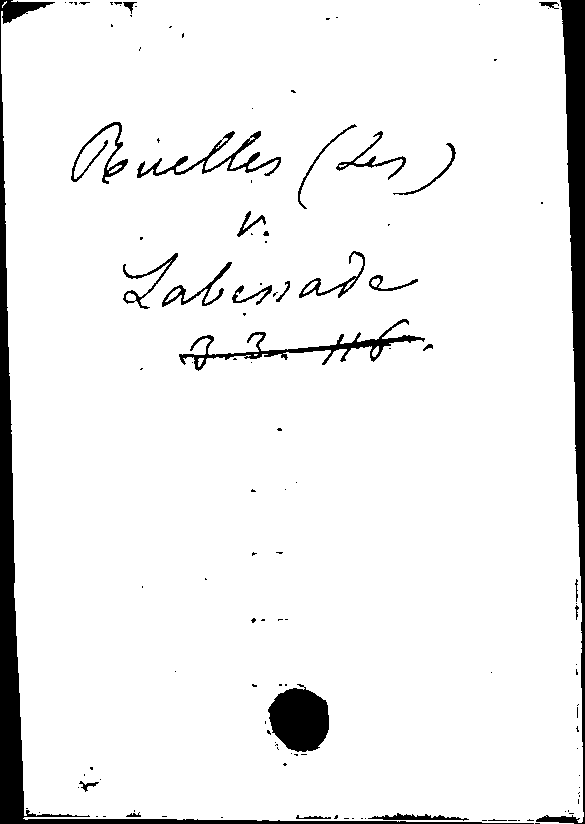 Ruelles (Les)
v.
Labessade
3. 3. 116.